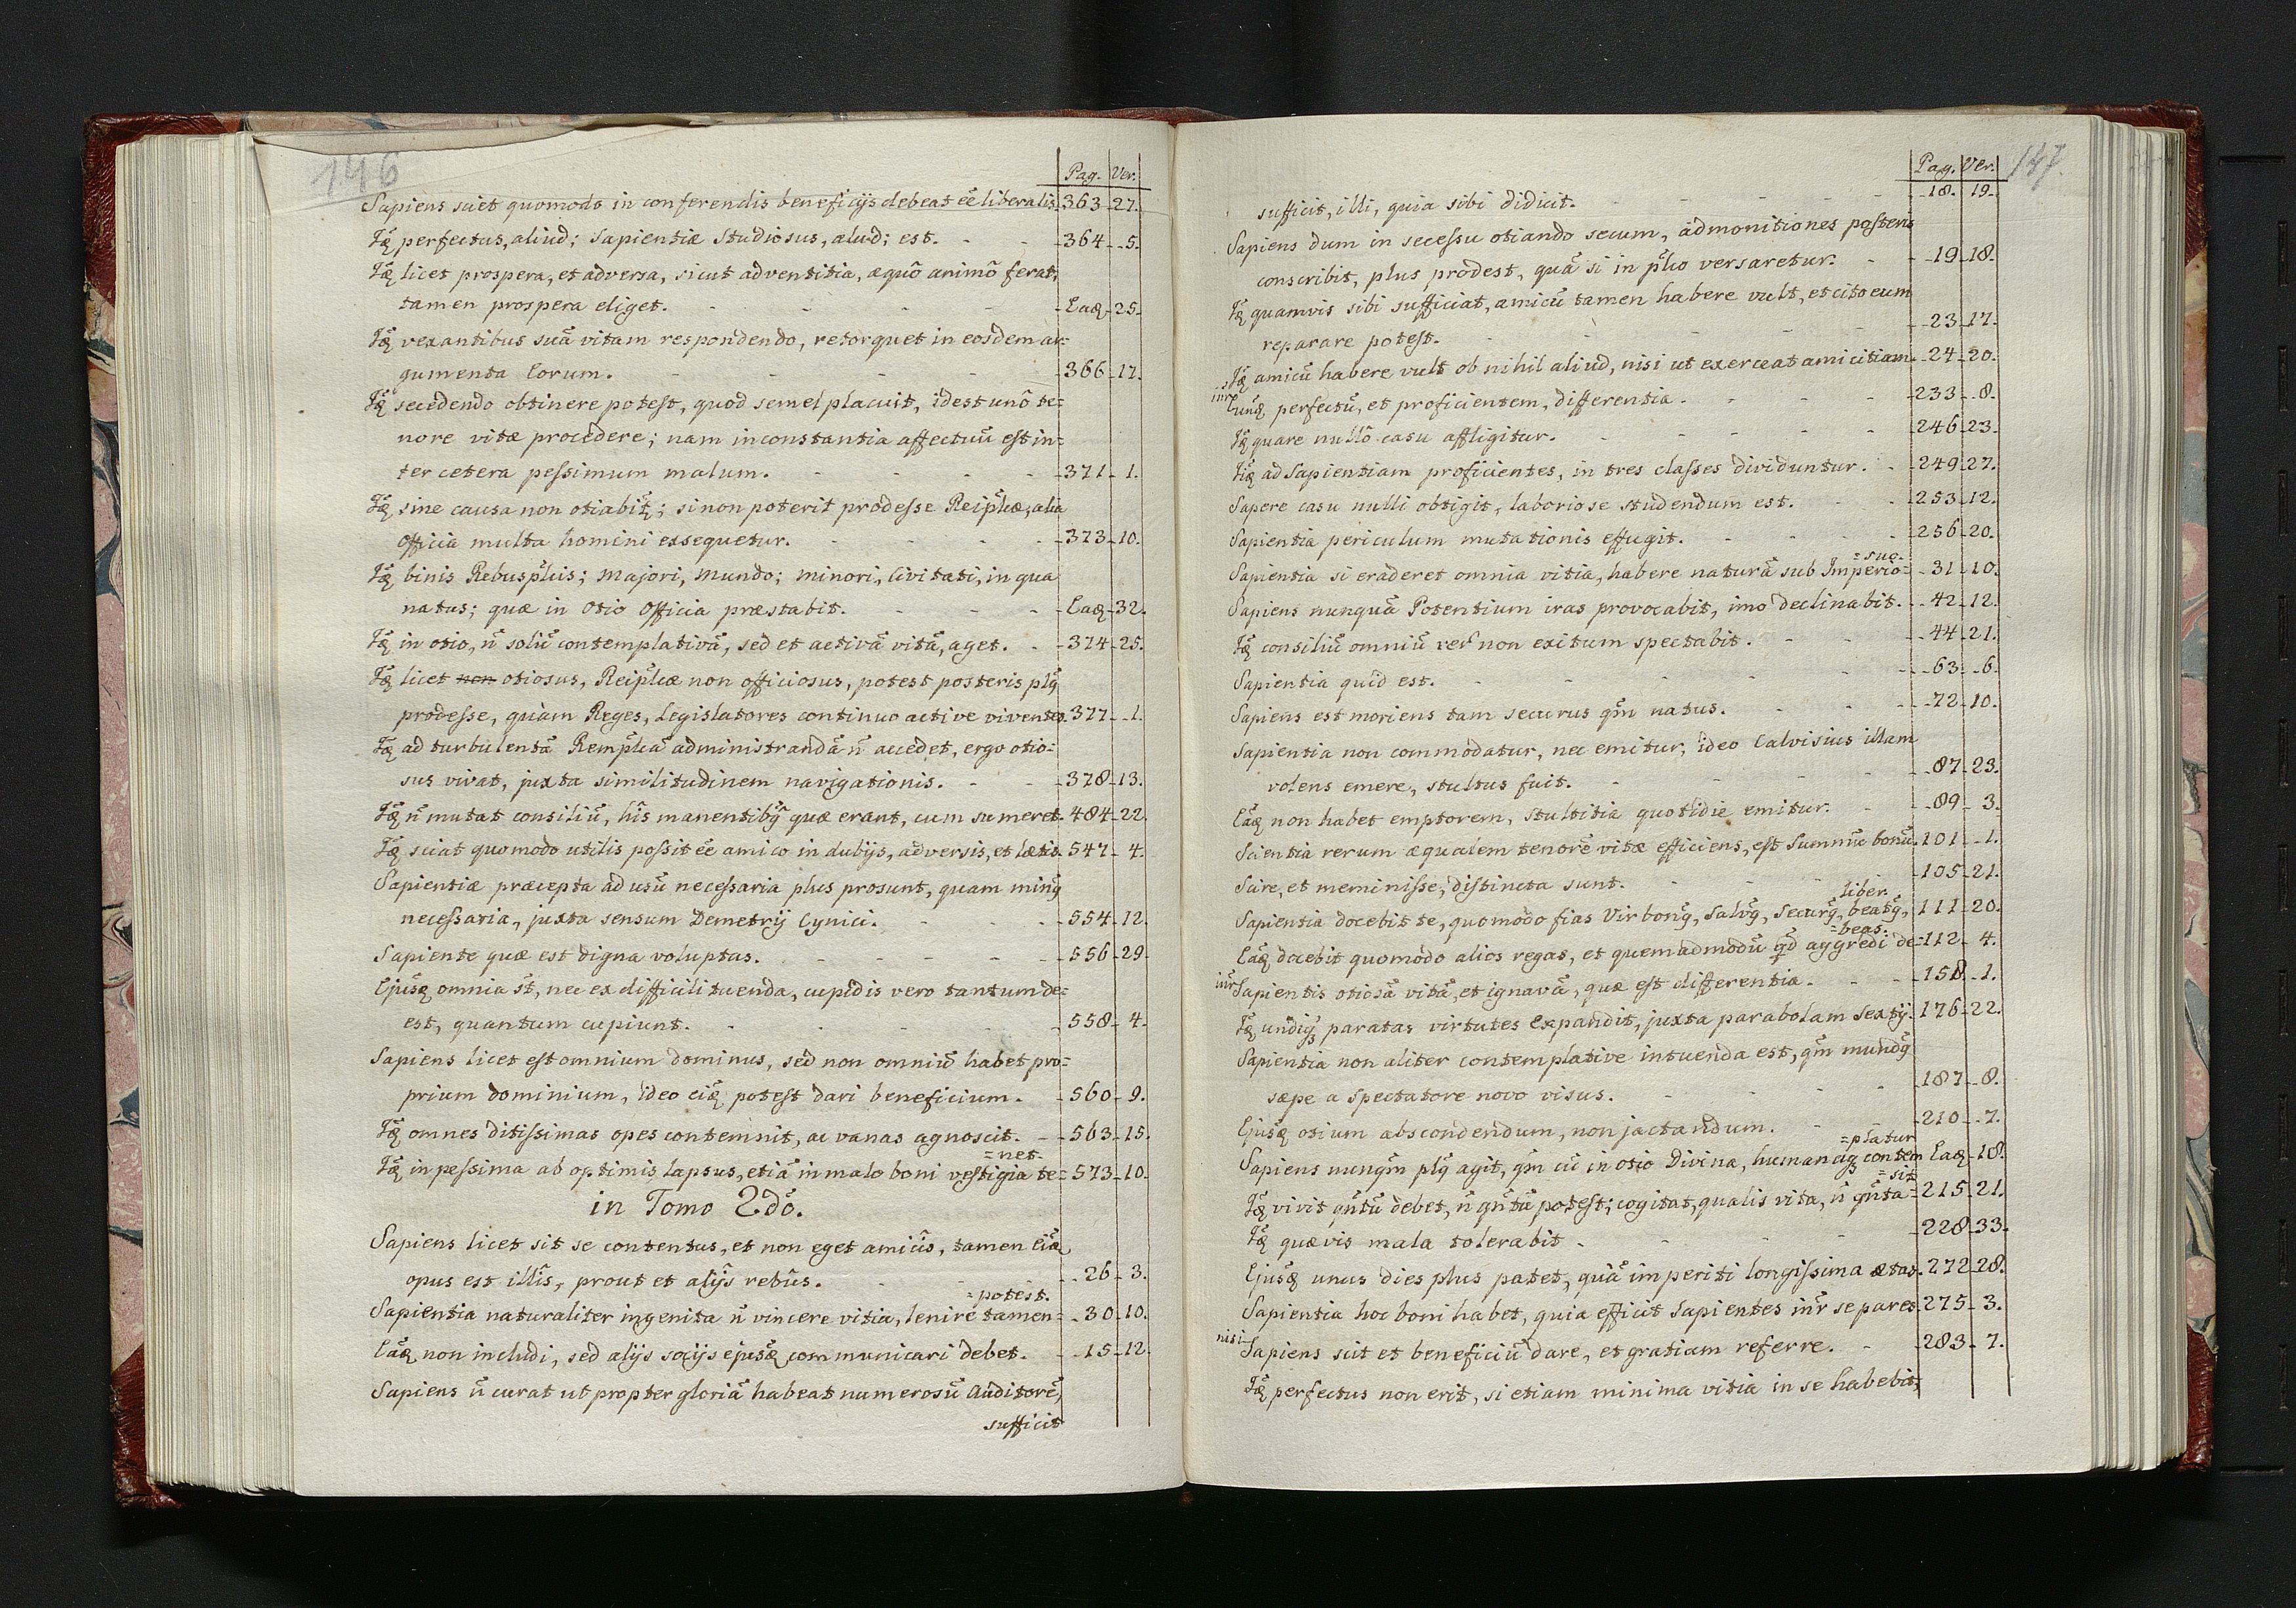 146
Pag. Ver.
Sapiens sciet quomodo in conferendis beneficijs debeat eē liberalis. 363. 27.
Id̃ę perfectus, aliud; sapientiæ studiosus, alud; est. - - 364. 5.
Id̃ę licet prospera, et adversa, sicut adventitia, æquô animô ferat,
tamen prospera eliget. - - - - Eaę 25.
Id̃ę vexantibus suā vitam respondendo, retorquet in eosdem ar=
gumenta eorum. - - - - 366. 17.
Id̃ę secedendo obtinere potest, quod semel placuit, id est unô te=
nore vitæ procedere; nam inconstantia affectuū est in=
ter cetera pessimum malum. - - - 371. 1.
Id̃ę sine causa non otiabit̃ę; si non poterit prodesse Reip̃licæ, alia
officia multa homini exsequetur. - - - 373. 10.
Id̃ę binis Rebusp̃licis; majori, mundo; minori, Civitati, in qua
natus; quæ in otio officia præstabit. - - - Eaę 32.
Id̃ę in otio, ñ solū contemplativā, sed et activā vitā, aget. - 374. 25.
Id̃ę licet non otiosus, Reip̃licæ non officiosus, potest posteris plꝰ
prodesse, quàm Reges, Legislatores continuo active viventes. 377. 1.
Id̃ę ad turbulentā Remp̃licā administrandā ñ accedet, ergo otio=
sus vivat, juxta similitudinem navigationis. - - 378. 13.
Id̃ę ñ mutat consiliū, hîs manentibꝰ quæ erant, cum sumeret. 484. 22.
Id̃ę sciat quomodo utilis possit eē amico in dubijs, adversis, et lætis. 547. 4.
Sapientiæ præcepta ad usū necessaria plus prosunt, quam minꝰ
necessaria, juxta sensum Demetrij Cynici. - - - 554. 12.
Sapiente quæ est digna voluptas. - - - - 556. 29.
Ejusd̃ę omnia st̃, nec ex difficili tuenda, cupidis vero tantum de=
est, quantum cupiunt. - - - - 558. 4.
Sapiens licet est omnium dominus, sed non omniū habet pro=
prium dominium, ideo eid̃ę potest dari beneficium. - 560. 9.
Id̃ę omnes ditissimas opes contemnit, ac vanas agnoscit. - 563. 15.
=net.
Id̃ę in pessima ab optimis lapsus, etiā in malo boni vestigia te= 573. 10.
in Tomo 2dō.
Sapiens licet sit se contentus, et non eget amicîs, tamen eid̃ę
opus est illîs, prout et alijs rebûs. - - 26. 3.
=potest.
Sapientia naturaliter ingenita ñ vincere vitia, lenire tamen= 30. 10.
Eād̃ę non includi, sed alijs socijs ejusd̃ę communicari debet. - 15. 12.
Sapiens ñ curat ut propter gloriā habeat numerosū Auditorē,
sufficit
147.
Pag. Ver.
sufficit, illi, quia sibi didicit. - - - - 18. 19.
Sapiens dum in secessu otiando secum, admonitiones posteris
conscribit, plus prodest, quā si in p̃lio versaretur. - 19. 18.
Id̃ę quamvis sibi sufficiat, amicū tamen habere vult, et cito eum
reparare potest. - - - - 23. 17.
Id̃ę amicū habere vult ob nihil aliud, nisi ut exerceat amicitiam. 24. 20.
perfectū, et proficientem, differentia. - - - 233. 8.
Id̃ę quare nullô casu affligitur. - - - - 246. 23.
ad Sapientiam proficientes, in tres classes dividuntur. - 249. 27.
Sapere casu nulli obtigit, laboriose studendum est. - - 253. 12.
Sapientia periculum mutationis effugit. - - - 256. 20.
=suo.
Sapientia si eraderet omnia vitia, habere naturā sub Imperio= 31. 10.
Sapiens nunquā Potentium iras provocabit, imo declinabit. - 42. 12.
Id̃ę consiliū omniū rer̃ non exitum spectabit. - - 44. 21.
Sapientia quid est. - - - - 63. 6.
Sapiens est moriens tam securus qm̃ natus. - - - 72. 10.
Sapientia non commodatur, nec emitur, ideo Calvisius illam
volens emere, stultus fuit. - - - - 87. 23.
Eād̃ę non habet emptorem, stultitia quotidie emitur. - 89. 3.
Scientia rerum æqualem tenorē vitæ efficiens, est Summū bonū. 101. 1.
Scire, et meminisse, distincta sunt. - - - 105. 21.
liber.
Sapientia docebit te, quomodo fias Vir bonꝰ, salvꝰ, securꝰ, beatꝰ, 111. 20.
=beas.
Eād̃ę docebit quomodo alios regas, et quemadmodū qd̃ aggredi de= 112. 4.
inr̃ Sapientis otiosā vitā, et ignavā, quæ est differentia. - - 158. 1.
Id̃ę undiqꝫ paratas virtutes expandit, juxta parabolam Sextij. 176. 22.
Sapientia non aliter contemplative intuenda est, qm̃ mundꝰ
sæpe a spectatore novo visus. - - - - 187. 8.
Ejusd̃ę otium abscondendum, non jactandum. - - 210. 7.
=platur
Sapiens nunqm̃ plꝰ agit, qm̃ cū in otio Divina, humanaqꝫ contem Eaę 18.
=sit
Id̃ę vivit qñtū debet, ñ qñtū potest; cogitat, qualis vita, ñ qñta= 215. 21.
Id̃ę quævis mala tolerabit - - - - 228. 33.
Ejusd̃ę unus dies plus patet, quā imperiti longissima ætas. 272. 28.
Sapientia hoc boni habet, quia efficit Sapientes inr̃ se pares. 275. 3.
nisi Sapiens scit et beneficiū dare, et gratiam referre. - 283. 7.
Id̃ę perfectus non erit, si etiam minima vitia in se habebit,